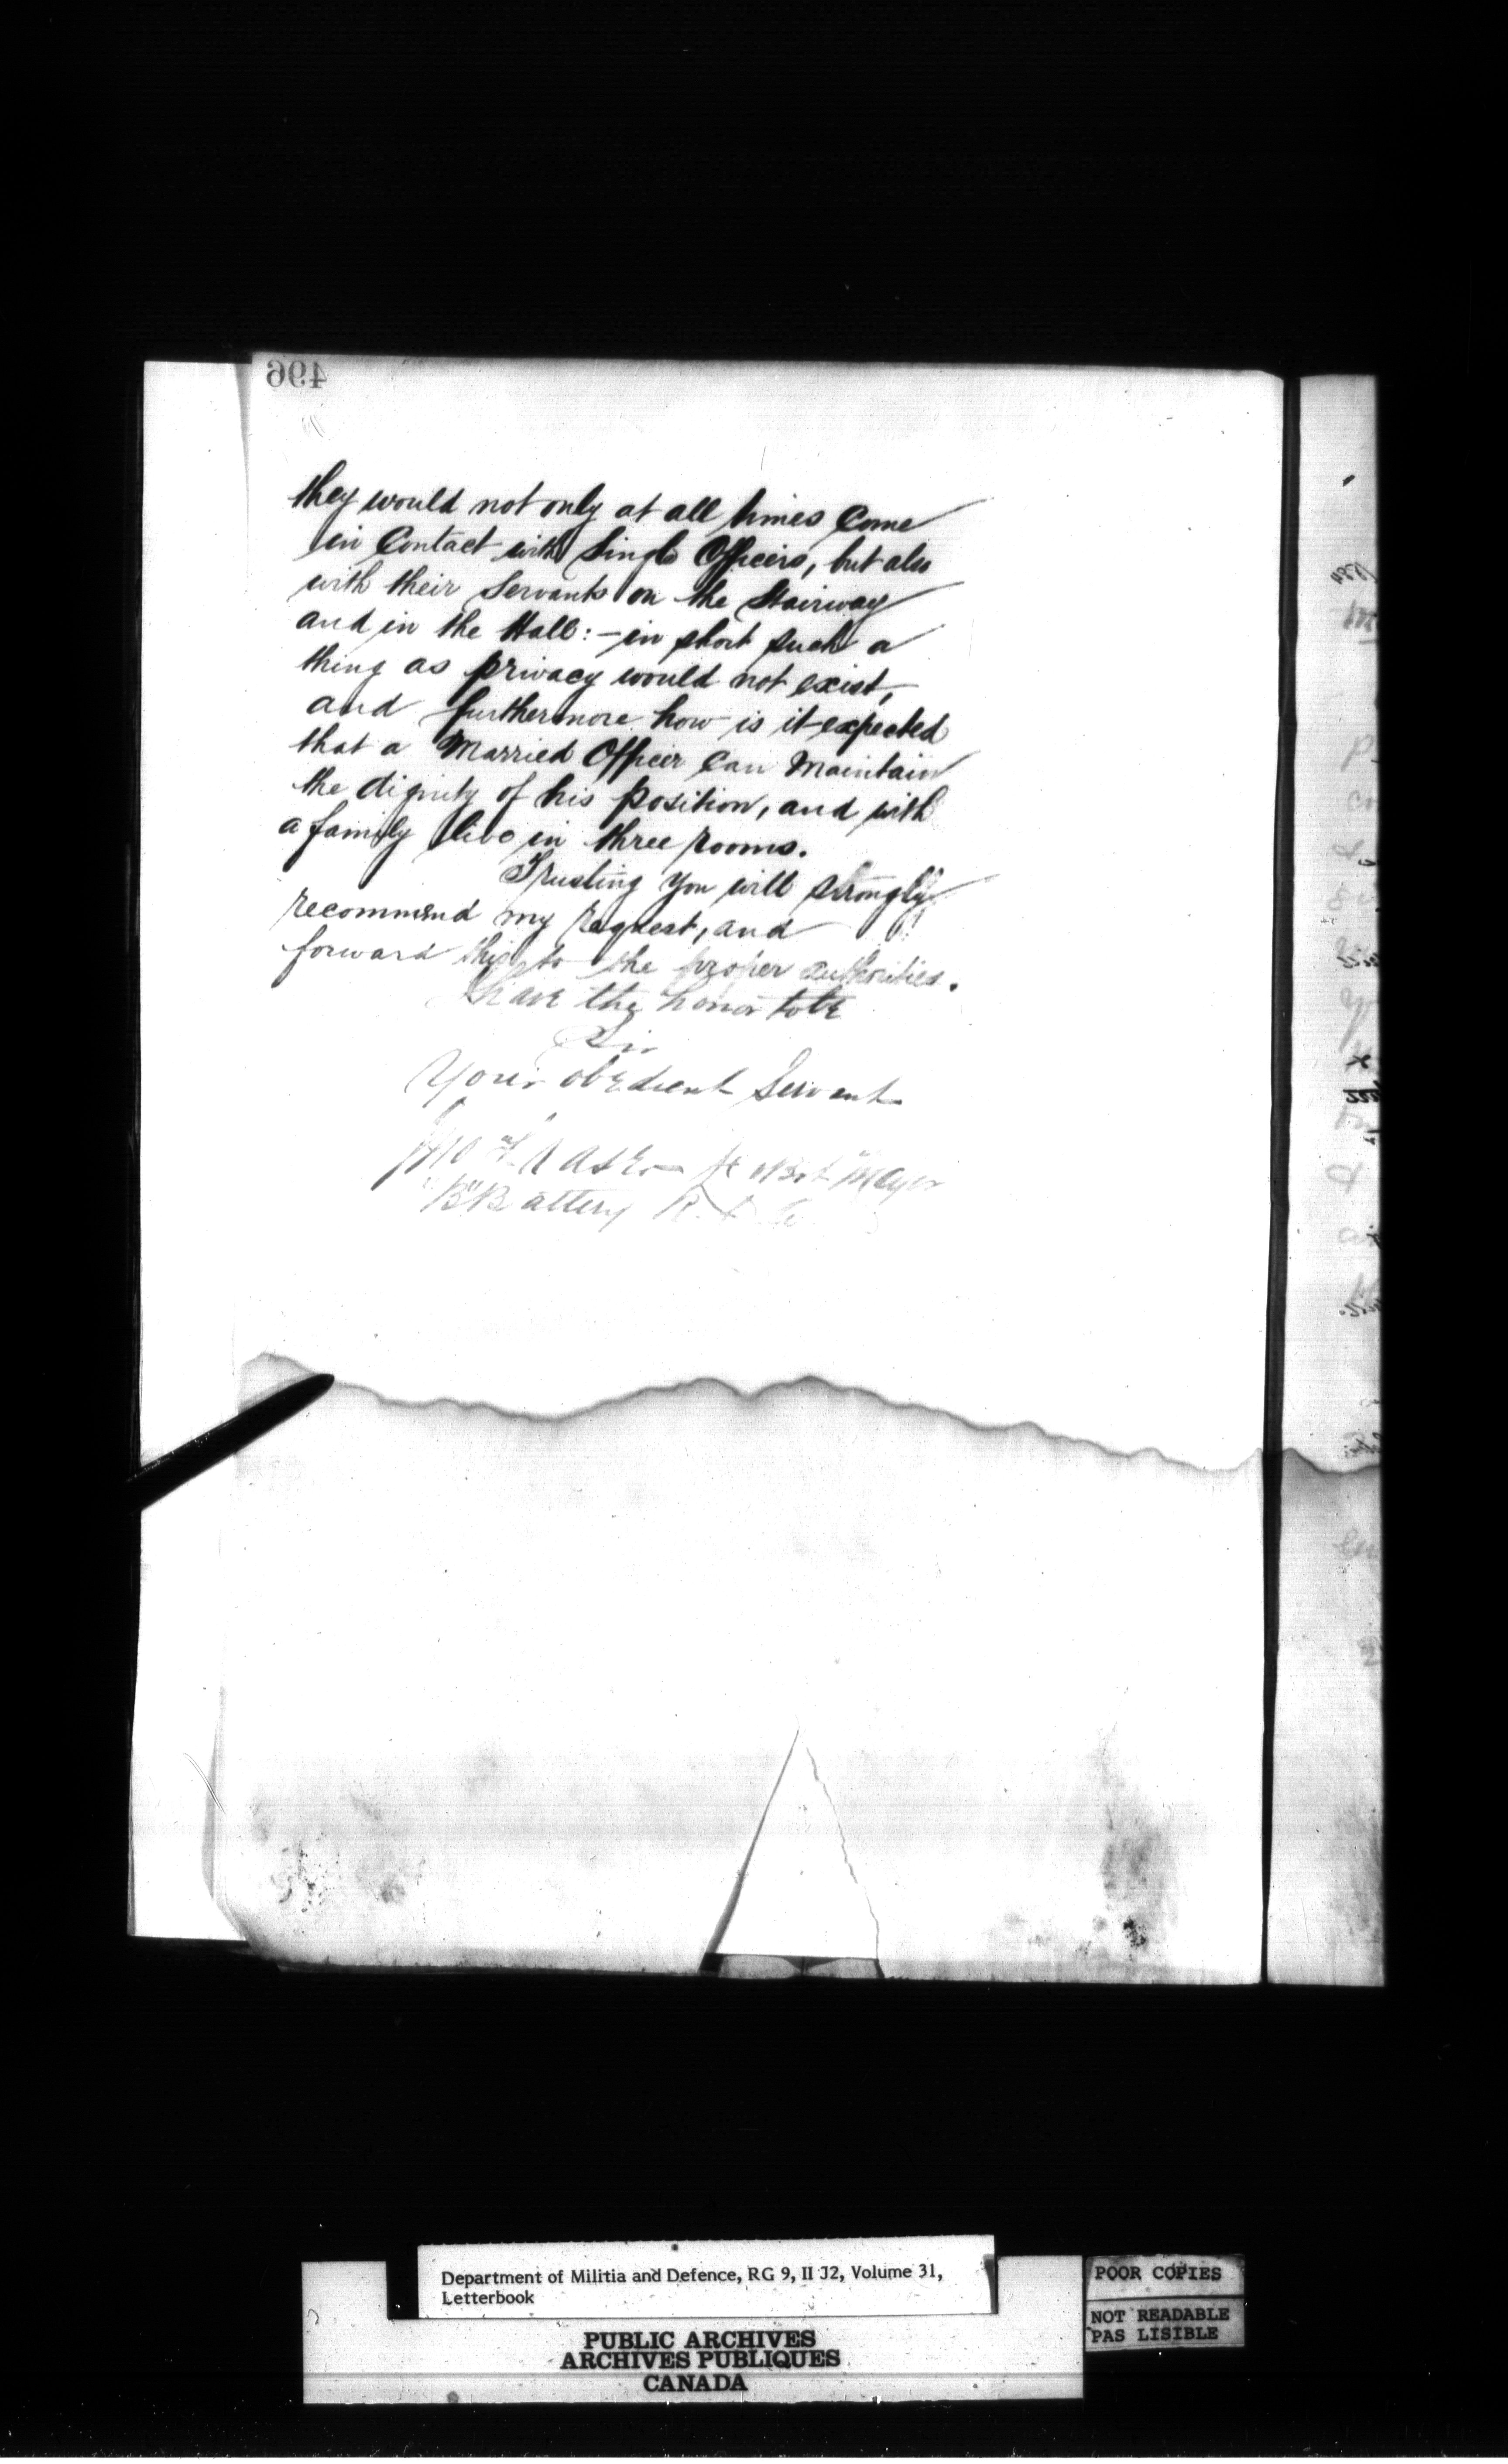 496
they would not only at all times Come
in Contact with Single Officers, but also
with their Servants on the Stairway
and in the Hall: - in short such a
thing as privacy would not exist,
and furthermore how is it expected
that a Married Officer can Maintain
the dignity of his position, and with
a family live in three rooms.
Trusting you will strongly
recommend my request, and
forward this to the proper authorities.
I have the honor to be
Sir
Your obedient Servant
"B" Battery
Department of Militia and Defence, RG 9, II J2, Volume 31,
Letterbook
POOR COPIES
NOT READABLE
PAS LISIBLE
PUBLIC ARCHIVES
ARCHIVES PUBLIQUES
CANADA